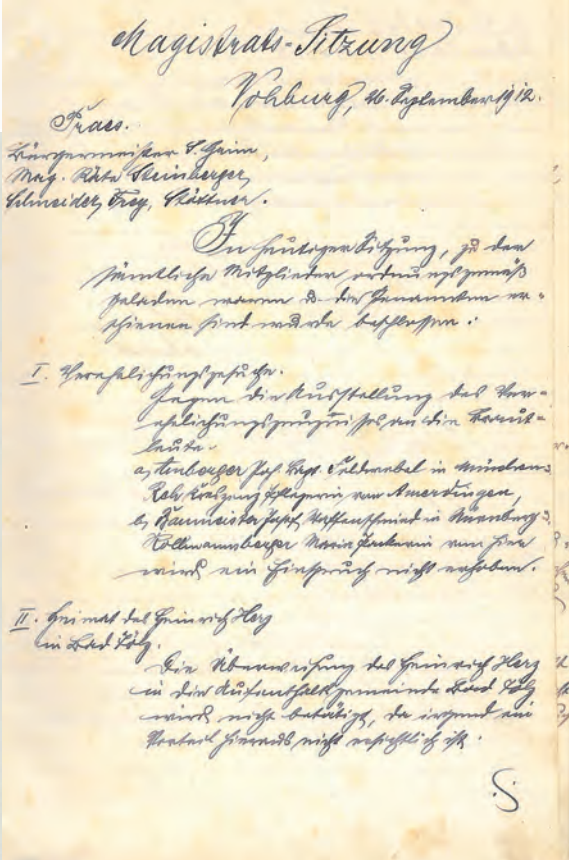 Magistrats-Sitzung
Vohburg, 26. September 1912.
Praes.
Bürgermeister S. Gaim,
Mag. Räte Steinberger,
Schneider, Frey, Stöttner.
In heutiger Sitzung, zu der
sämtliche Mitglieder ordnungsgemäß
geladen waren u. die Genannten er-
schienen sind wurde beschlossen:
I. Verehelichungsgesuche.
Gegen die Ausstellung des Ver-
ehelichungszeugnisses an die Braut-
leute.
a, Amberger Jos. Feldwebel in München
Reh von Amerdingen,
b, Baumeister Josef, Waffenschmied in Nürnberg u.
Kollmannsberger Maria von hier
wird ein Einspruch nicht erhoben.
II. Heimat des Heinrich Herz
in Bad Tölz.
Die Überweisung des Heinrich Herz
in die Aufenthaltsgemeinde Bad Tölz
wird nicht betätigt, da irgend ein
Vorteil hieraus nicht ersichtlich ist.